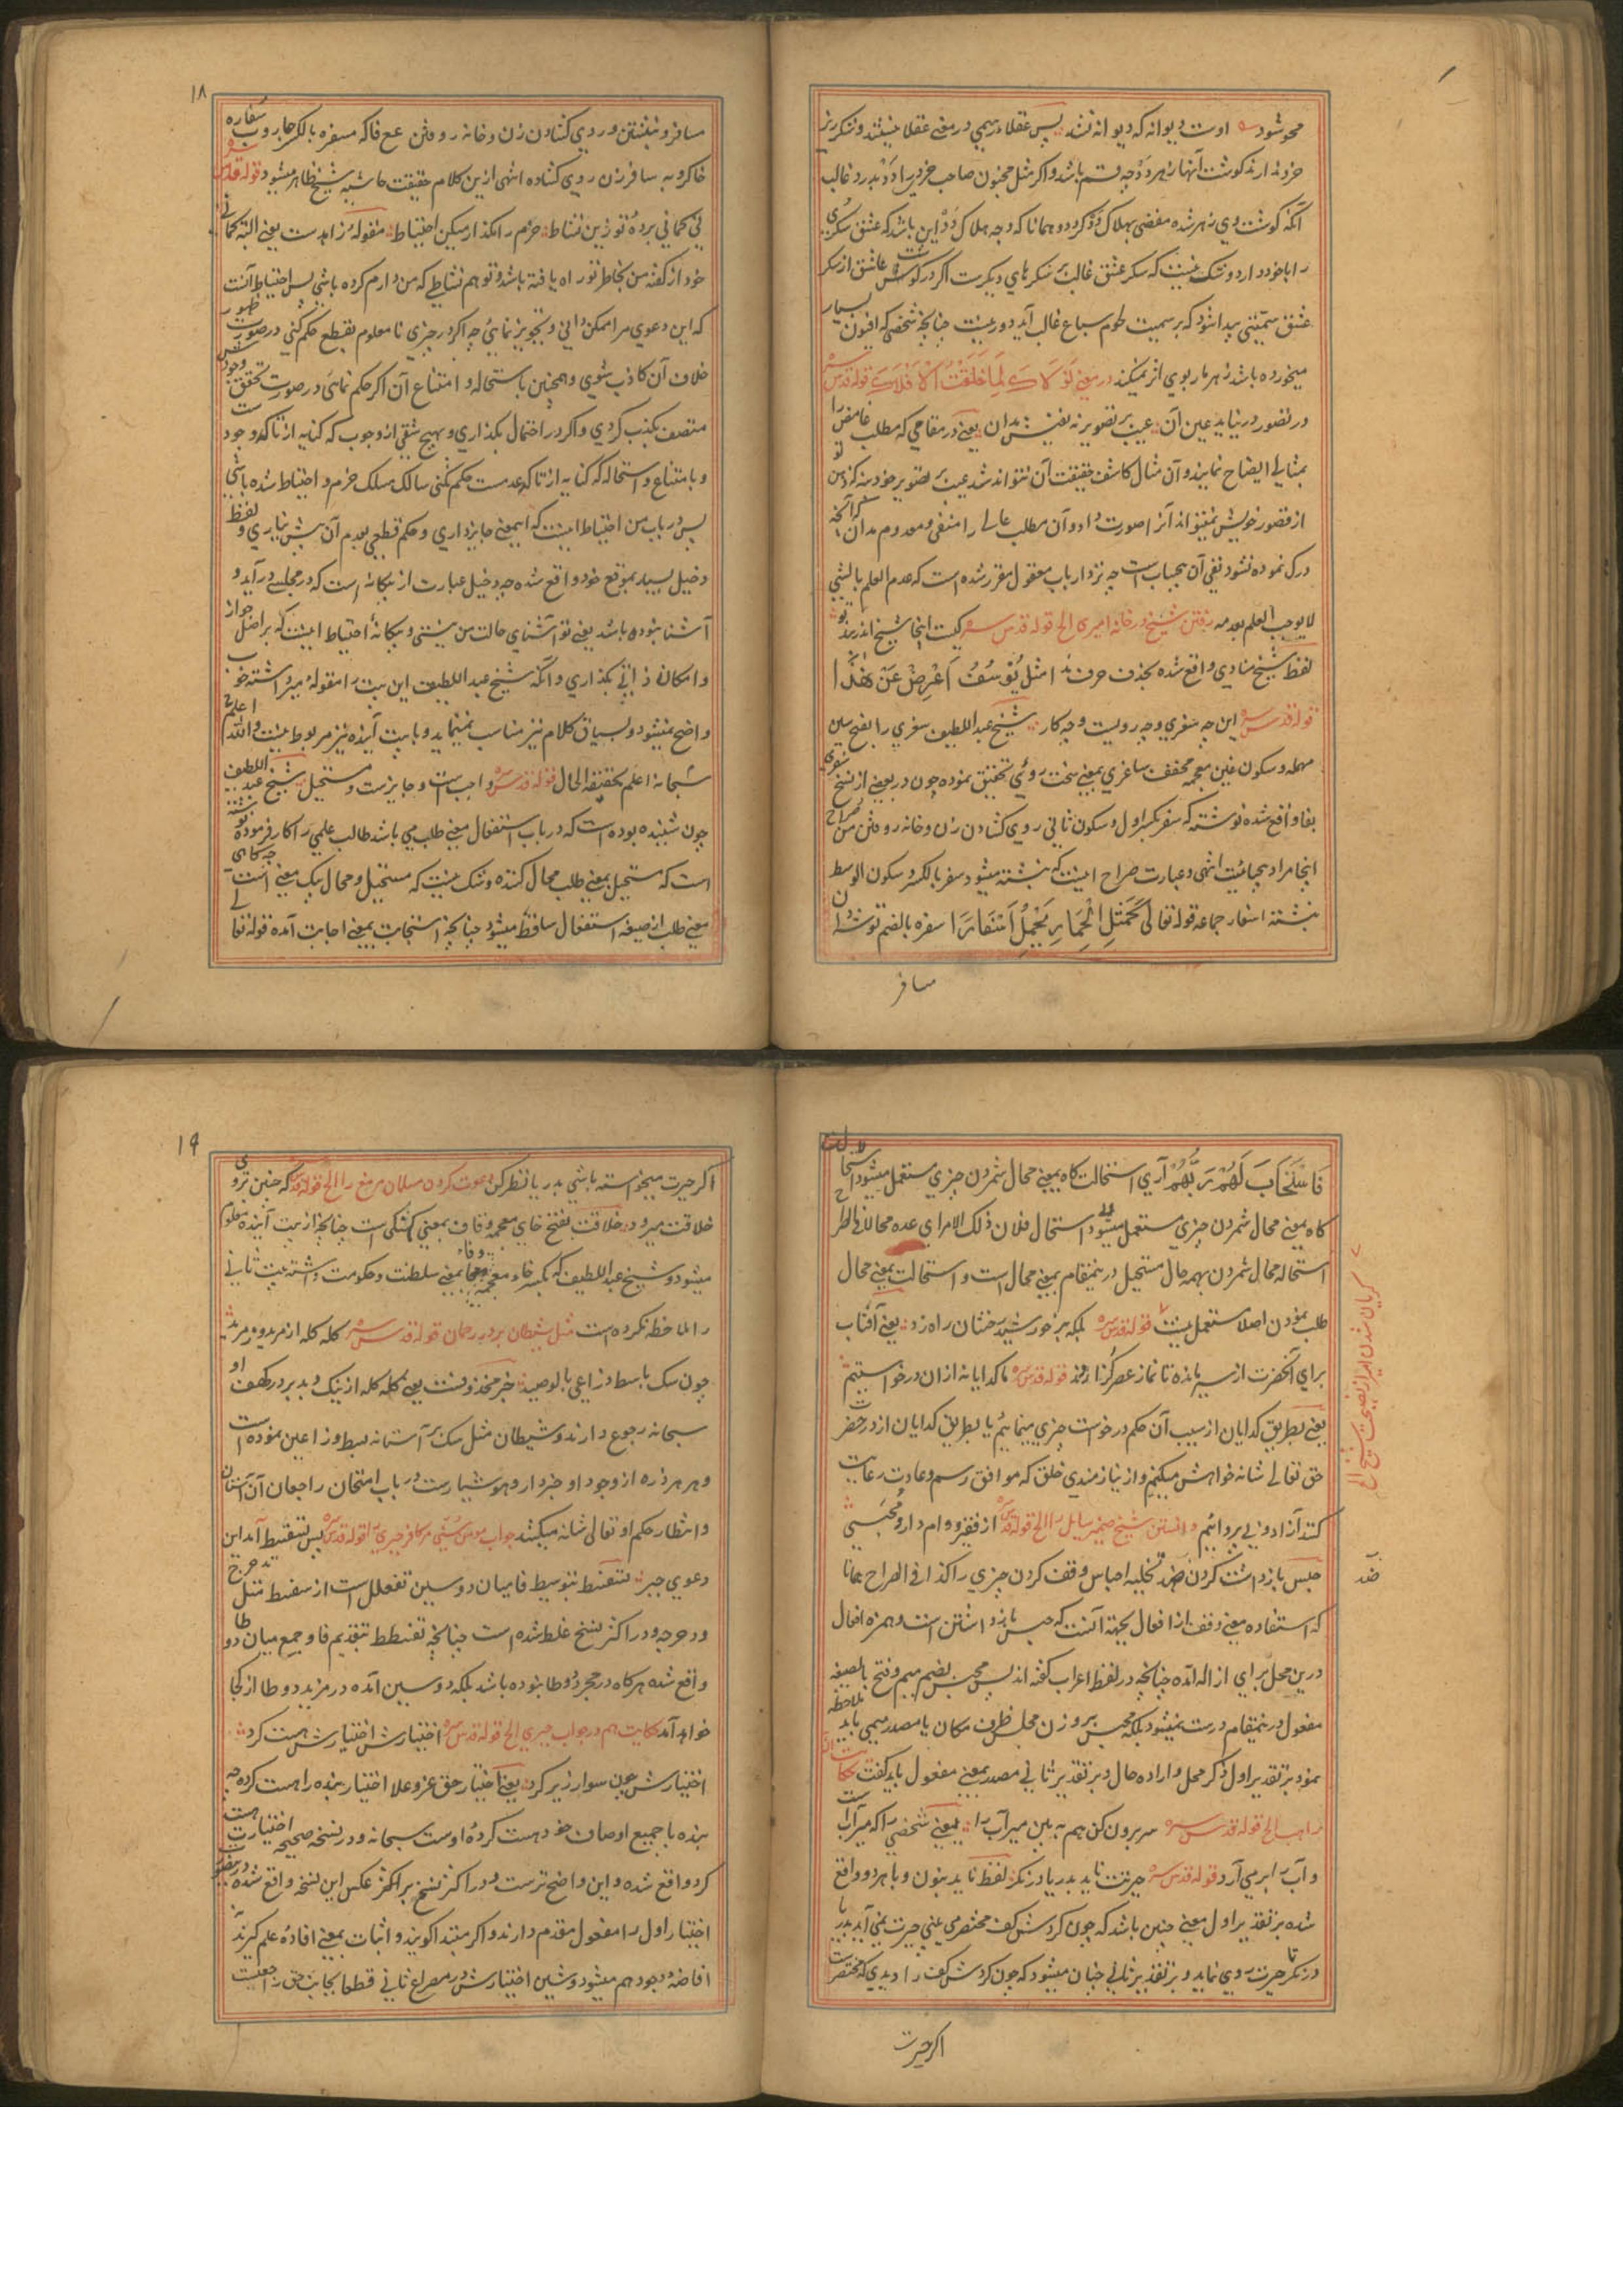 محو شود اوست دیوانه که دیوانه نشد پس عقلاء رسمی در معنی عقلا نیستند و شکر ریز
خرد ندارند گوشت آنها زهر دد چه قسم باشد و اگر مثل مجنون صاحب خردیرا دد بدرد غالب
آنکه گوشت وی زهر شده مفضی بهلاک دد گردد و همانا که وجه هلاک دد این باشد که عشق سکری
را با خود دارد و شک نیست که سکر عشق غالب بر سکرهای دیگرست اگر در گوشت عاشق از سکر
عشق سمیتی پیدا شود که بر سمیت طعوم سباع غالب آید دور نیست چنانچه شخصی که افیون بسیار
میخورده باشد زهر مار بوی اثر نمیکند در معنی لولاک لما خلقت الافلاک قوله قدس سره
در تصور در نیاید عین آن عیب بر تصویر نه نفیش مدان یعنی در مقامی که مطلب غامض را
بمثالی ایضاح نمایند و آن مثال کاشف حقیقت آن نتواند شد عیب بر تصویر خود نه که ذهن تو
از قصور خویش نمیتواند آنرا صورت داد و آن مطلب عالی را منفی و معدوم مدان که آنچه
درک نموده نشود نفی آن بیجاست چه نزد ارباب معقول مقرر شده است که عدم العلم بالشی
لا یوجب العلم بعدمه رفتن شیخ در خانه امیری الخ قوله قدس سره کیست اینجا شیخ اندر بند تو
لفظ شیخ منادی واقع شده بحذف حرف ندا مثل یُوسُفُ اَعْرِضْ عَنْ هٰذَا
قوله قدس سره این چه سغری وچه رویست وچه کار شیخ عبد اللطیف سغری را بفتح سین
مهمله و سکون غین معجمه مخفف ساغری بمعنی سخت روئی تحقیق نموده چون در بعضی از نسخ سفری
بفا واقع شده نوشته که سفر بکسر اول و سکون ثانی روی کشادن زن و خانه روفتن من صراح
اینجا مراد بیحیائیست انتهی و عبارت صراح اینست که نبشته میشود سفر بالکسر و سکون الوسط
نبشته اسفار جماعه قوله تعالی کَمَثَلِ الْحِمَارِ یَحْمِلُ اَسْفَارًا سفره بالضم توشه دان
مسافر
۱۸
مسافر و نبشتن و روی کشادن زن و خانه روفتن مع فاکه مسفره بالکسر جاروب سفاره
خاکروبه سافر زن روی کشاده انتهی ازین کلام حقیقت حاشیه شیخ ظاهر میشود قوله قدس سره
نی گمانی برده تو زین نشاط حزم را مگذار میکن احتیاط مقوله زاهدست یعنی البته گمانی
خود از گفته من بخاطر تو راه یافته باشد و تو هم نشاطی که من دارم کرده باشی پس احتیاط آنست
که این دعوی مرا ممکن دانی و تجویز نمائی چه اگر در چیزی نا معلوم بقطع حکم کنی در صورت ظهور
خلاف آن کاذب شوی و همچنین باستحاله و امتناع آن اگر حکم نمائی در صورت تحقق وجود
متصف بکذب گردی و اگر در احتمال بگذاری و بهیچ شقی از وجوب که کنایه از تاکد وجود ست
و بامتناع و استحاله که کنایه از تاکد عدمست حکم نکنی سالک مسلک حزم و احتیاط شده باشی
پس در باب من احتیاط اینست که اینمعنی جایز داری و حکم قطعی بعدم آن پیش نیاری و لفظ
دخیل بسیار بموقع خود واقع شده چه دخیل عبارت از بیگانه است که در مجلسی در آید و
آشنا نبوده باشد یعنی تو آشنای حالت من نیستی و بیگانه احتیاط اینست که بر اصل جواز
و امکان ذاتی بگذاری و آنکه شیخ عبد اللطیف این بیت را مقوله میر داشته خوب
واضح نمیشود و بسیاق کلام نیز مناسب نمینماید و با بیت آینده نیز مربوط نیست والله اعلم
سبحانه اعلم بحقیقة الحال قوله قدس سره واجب ست و جایزست و مستحیل شیخ عبد اللطیف
چون شنیده بوده است که در باب استفعال معنی طلب می باشد طالب علمی را کار فرموده نوشته
است که مستحیل بمعنی طلب محال کننده و شک نیست که مستحیل و محال بیک معنی است چه گاهی
معنی طلب از صیغه استفعال ساقط میشود چنانچه استجابت بمعنی اجابت آمده قوله تعالی
فَاسْتَجَابَ لَهُمْ رَبُّهُمْ آری استحالت گاه بمعنی محال شمردن چیزی مستعمل میشود
گاه بمعنی محال شمردن چیزی مستعمل میشود استحال فلان ذلک الامر ای عده محالا فی الطر
استحاله محال شمردن بهمه حال مستحیل درینمقام بمعنی محال است و استحالت بمعنی محال
طلب نمودن اصلا مستعمل نیست قوله قدس سره بلکه بر خورشید رخشان راه زد یعنی آفتاب
برای آنحضرت از سیر بازماند تا نماز عصر گزاردند قوله قدس سره ما گدایانه ازان درخواستیم
یعنی بطریق گدایان از سبب آن حکم درخواست چیزی مینمائیم یا بطریق گدایان از در حضرت
حق تعالی شانه خواهش میکنیم و از نیازمندی خلق که موافق رسم و عادت رعایت
کنند آزاد و بی پروائیم دانستن شیخ ضمیر سایل را الخ قوله قدس سره از فقیر و وام دار و محبسی
حبس باز داشتن کردن ضد تخلیه احباس وقف کردن چیزی را کذا فی الصراح همانا
که استفاده معنی وقف از افعال بجهة آنست که حبس باز داشتن است و همزه افعال
درین محل برای ازاله آمده چنانچه در لفظ اعراب گفته اند پس محبس بضم میم و فتح با صیغه
مفعول درینمقام درست نمیشود بلکه محبس بر وزن مجلس ظرف مکان یا مصدر میمی باید ملاحظه
نمود بر تقدیر اول ذکر محل و اراده حال و بر تقدیر ثانی مصدر بمعنی مفعول باید گفت حکایت آن
زاهد الخ قوله قدس سره سر برون کن هم به بین میر آب را یعنی شخصی را که میر آب است
و آب را بر می آرد قوله قدس سره حیرتت ناید بدریا در نگر لفظ ناید بنون و با هر دو واقع
شده بر تقدیر اول معنی چنین باشد که چون گردش کف مختصر می بینی حیرت نمی آید بدریا
در نگر تا حیرت روی نماید و بر تقدیر ثانی چنان میشود که چون گردش کف را دیدی که مختصرست
گریان شدن امیر از نصیحت شیخ الخ
ضد
اگر حیرت
۱۹
اگر حیرت میخواسته باشی بدریا نظر کن دعوت کردن مسلمان مر مغ را الخ قوله قدس سره که چنین بروی
خلاقت میرود خلاقت بفتح خای معجمه و قاف بمعنی کهنگی است چنانچه از بیت آینده معلوم
میشود و شیخ عبد اللطیف که بکسر خاء معجمه و فاء بمعنی سلطنت و حکومت داشته بیت ثانی
را ملاحظه نکرده است مثل شیطان بر در رحمان قوله قدس سره کله کله از مرید و از مرید
چون سگ باسط ذراعی بالوصید خبر محذوفست یعنی کله کله از نیک و بد بر درگهش او
سبحانه رجوع دارند و شیطان مثل سگ بر آستانه بسط ذراعین نموده است
و هر ذره از وجود او خبردار و هوشیارست در باب امتحان راجعان آن آستان
و انتظار حکم او تعالی شانه میکشند جواب مومن سنی مر کافر جبری را قوله قدس سره پس تسفسط آمد این
دعوی جبر تسفسط بتوسیط فا میان دو سین تفعلل است از سفسط مثل تدحرج
و دحرج و در اکثر نسخ غلط شده است چنانچه تفسطط بتقدیم فا و جمع میان دو طا
واقع شده هرگاه در مجرد دو طا نبوده باشد بلکه دو سین آمده در مزید دو طا از کجا
خواهد آمد حکایت هم در جواب جبری الخ قوله قدس سره اختیارش اختیارش هست کرد
اختیارش چون سوار زیر گرد یعنی اختیار حق عز و علا اختیار بنده را هست کرده چه
بنده با جمیع اوصاف خود هست کرده اوست سبحانه و در نسخه صحیحه اختیارت هست
کرد واقع شده و این واضح ترست و در اکثر نسخ بر عکس این نسخه واقع شده
اختیار اول را مفعول مقدم دارند و اگر مبتدا گویند و اثبات بمعنی افاده علم گیرند
افاضه وجود هم میشود و شین اختیارش در مصراع ثانی قطعا بجانب حق راجعست